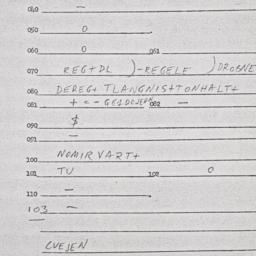 040 -
050 0
060 0 061
070 REG+DL )-REGELE )DROBNE
080 DEREG+ TLANGNIS++ONHALT+
081 + = - 082 -
090 $
091 -
100 NOMIRVART+
101 TU 102 0
110 -
103 -
LVEJEN